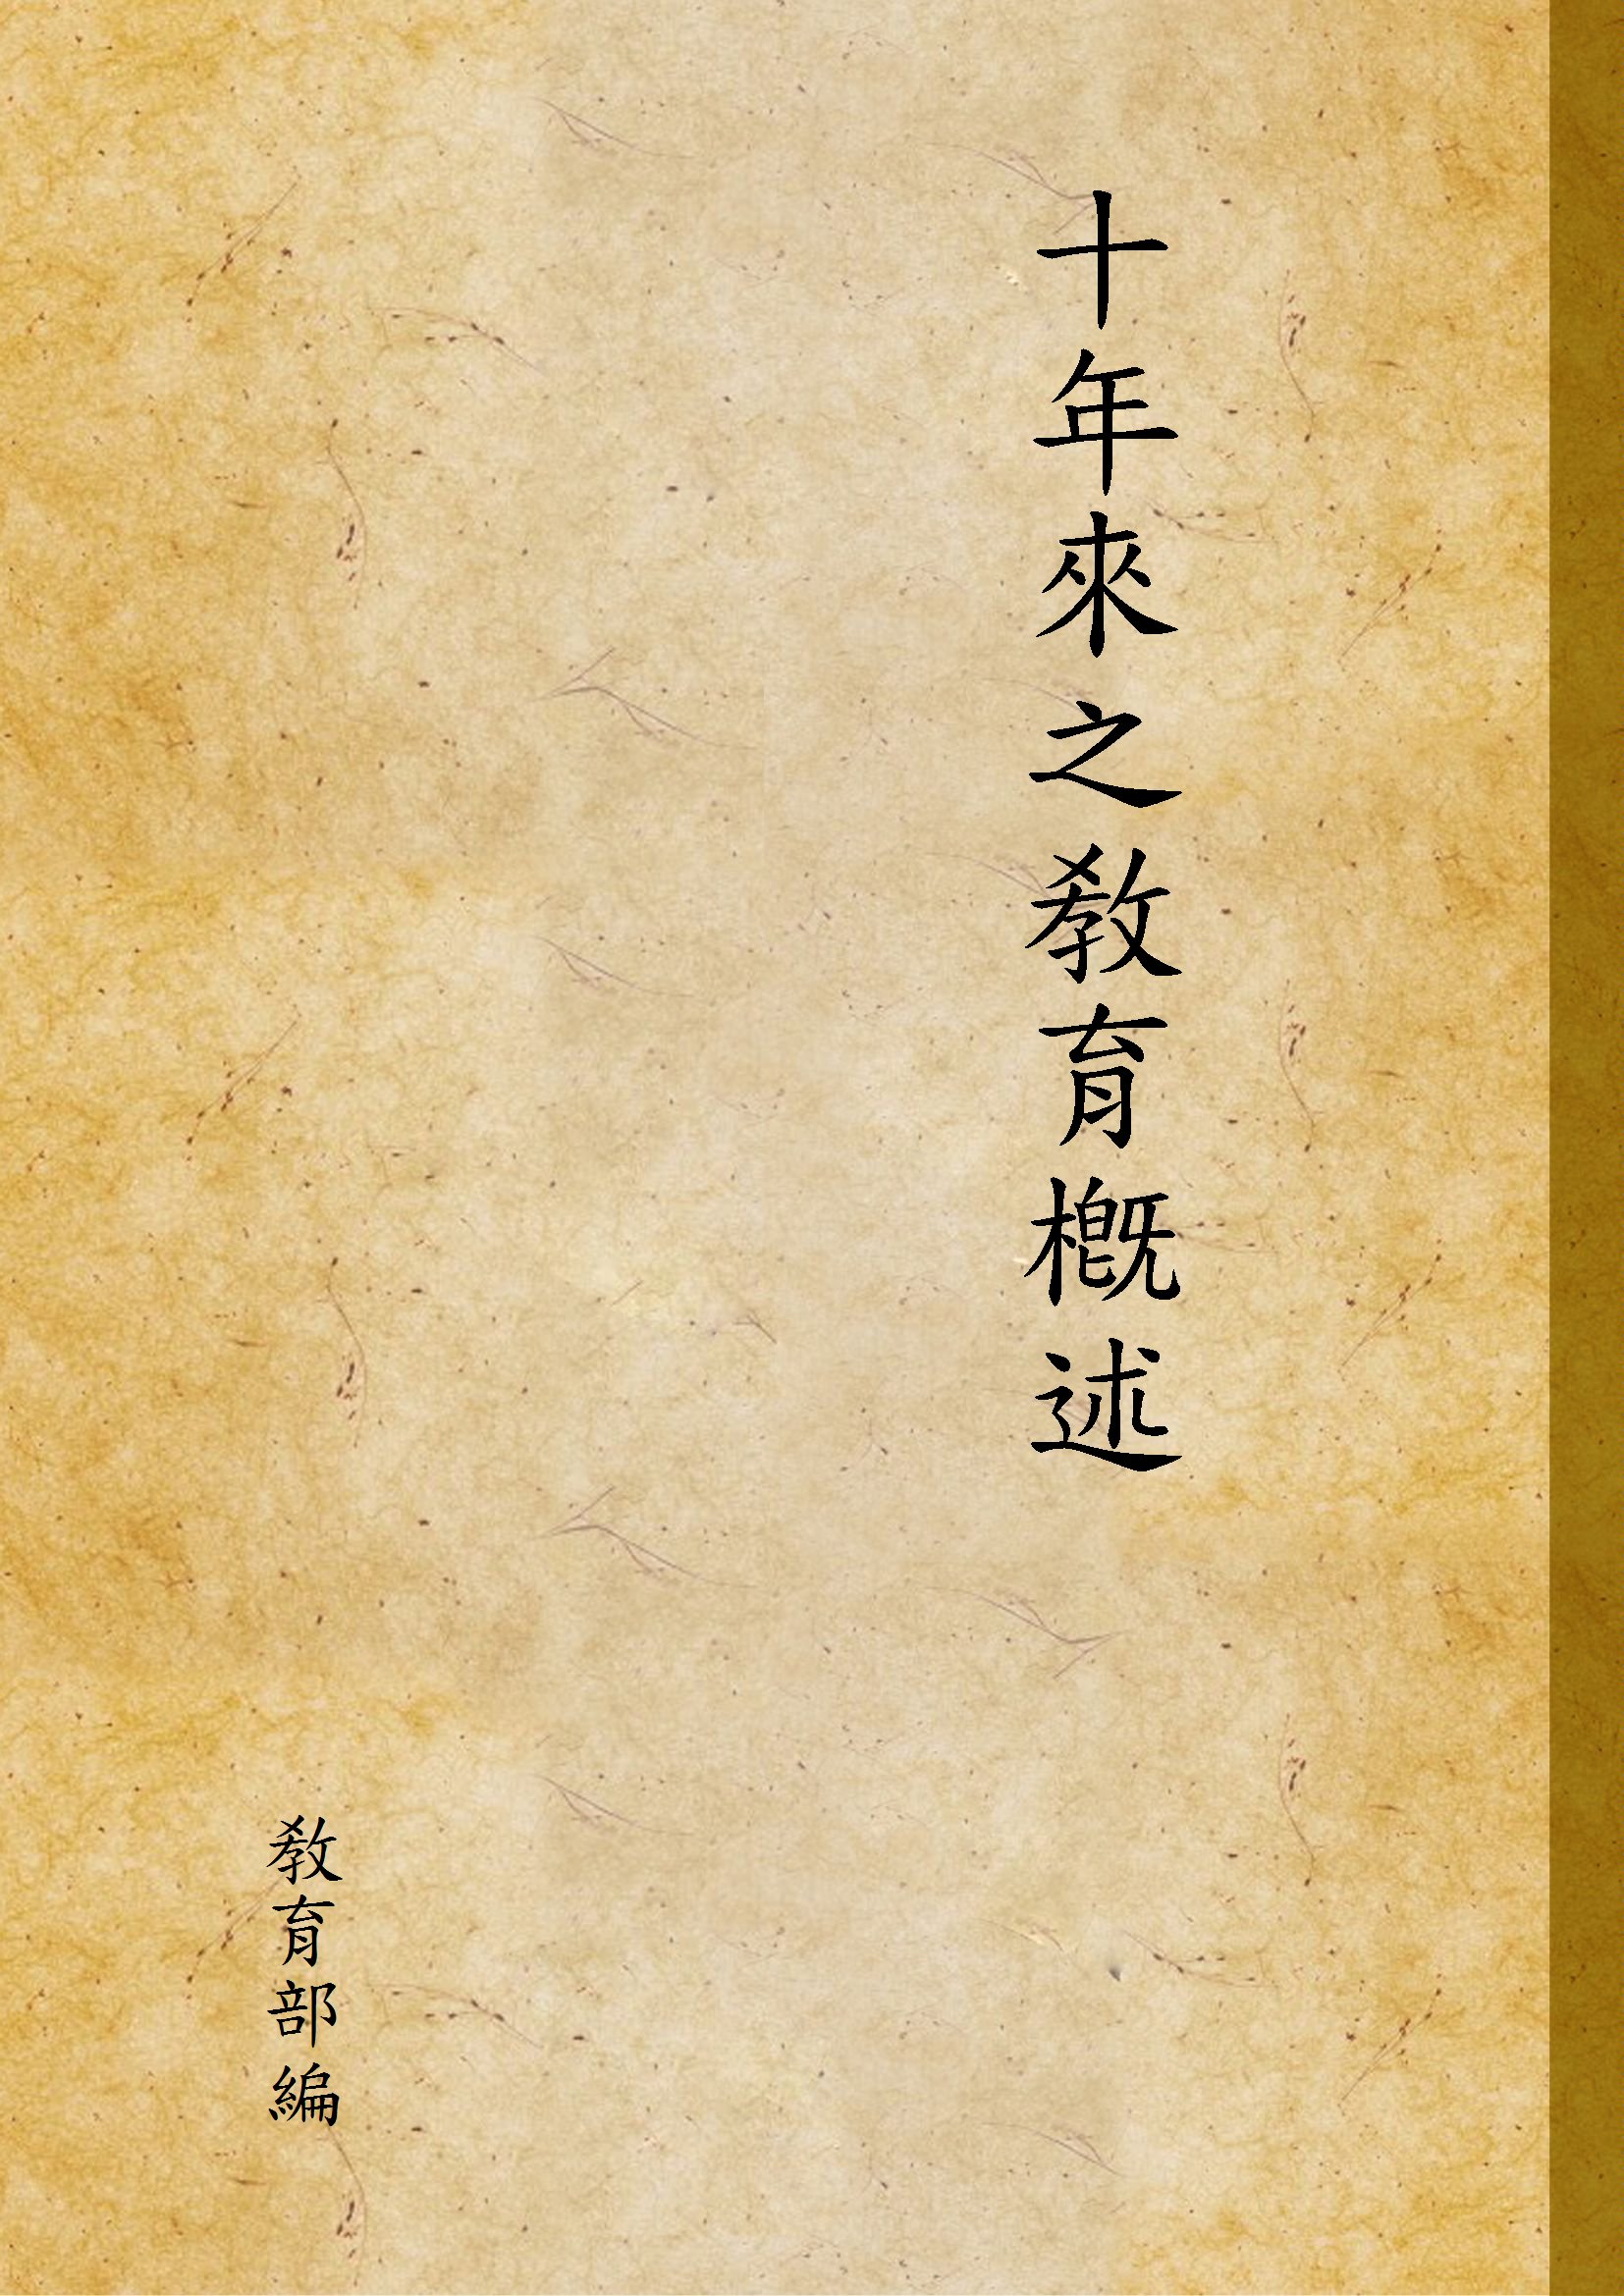 十年來之教育概述
教育部編